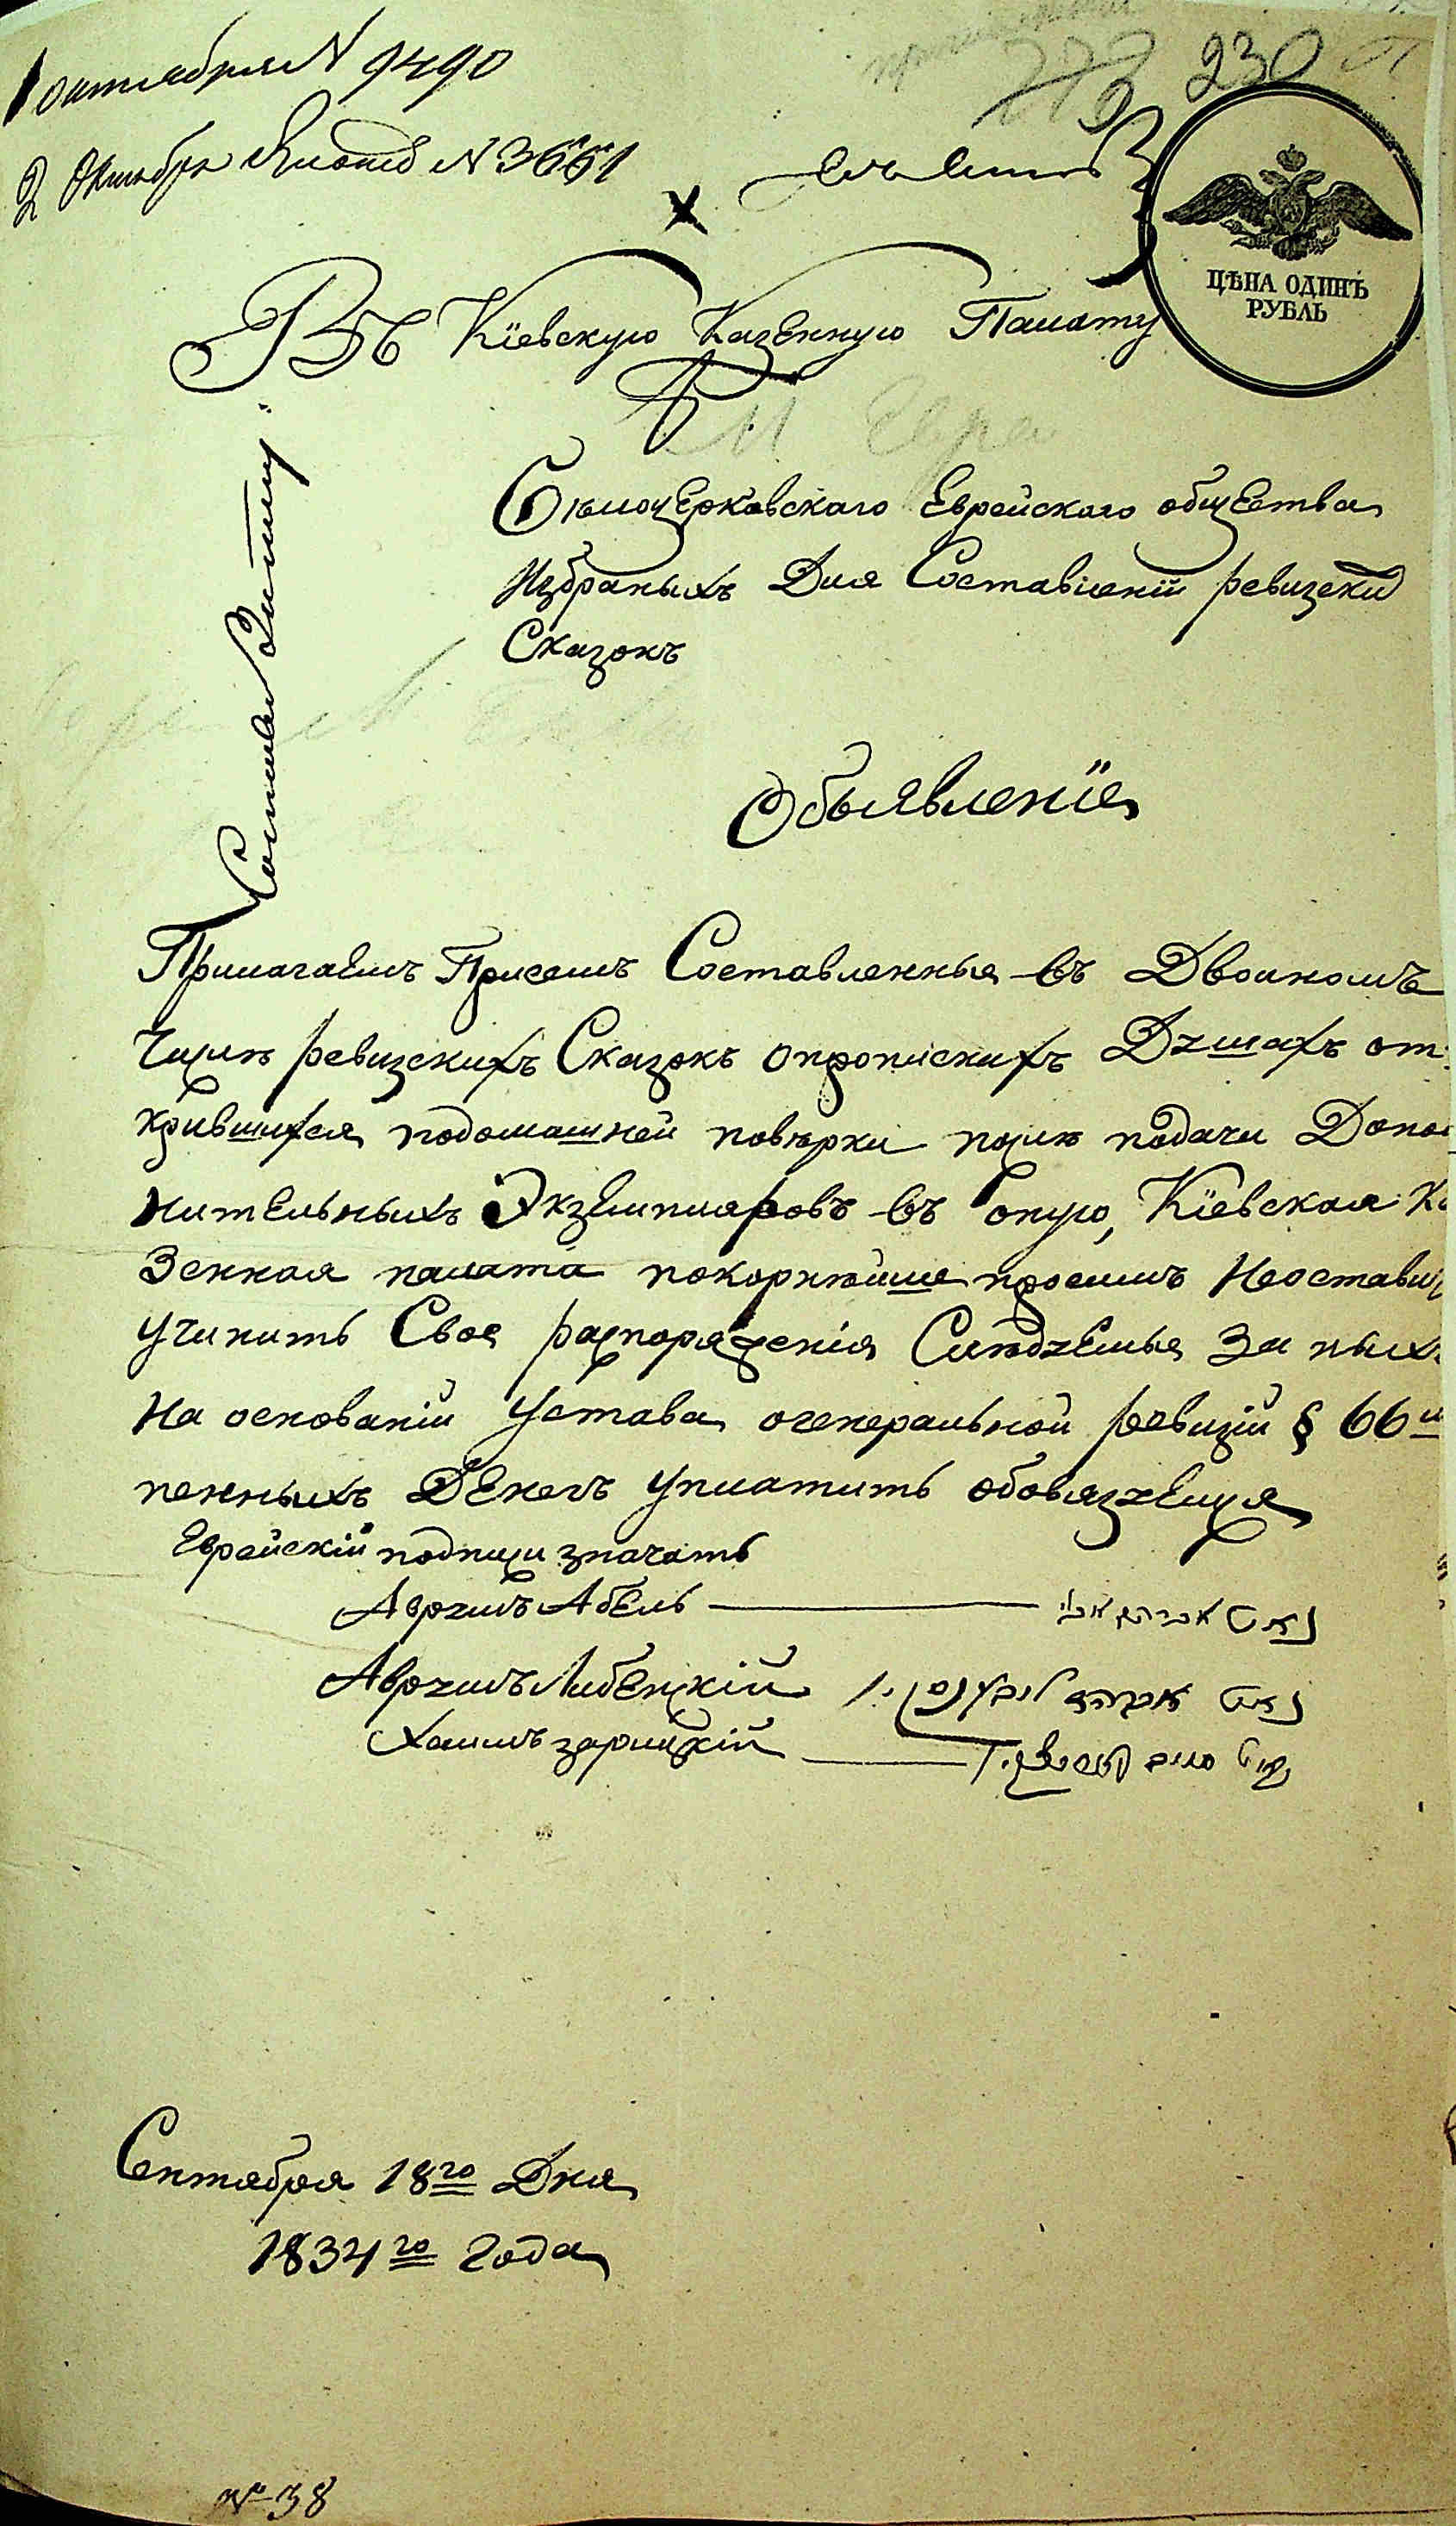 1 октября N 9490
230
2 Октября N 3661
ЦѢНА ОДИНЪ
РУБЛЬ
Въ Кіевскую Казенную Палату
Бѣлоцерковскаго Еврейского общества
Избраныхъ Для Составленій ревизски
Сказокъ
Объявленіе
Прилагаемъ Присемъ Составленные въ Двоиномъ
Числѣ ревизскихъ Сказокъ опрописныхъ Душахъ от
крившихся подомашней повѣрки послѣ подачи Допол
нительныхъ Экземпляровъ въ опую, Кіевская Ка
Зенная палата покорнѣйше просимъ Неоставит
учинить Свое распоряженія Слѣдуемые За ныхъ
На основаніи Устава огенеральной ревизіи § 66
пенныхъ Денегъ уплатить обовязуемся
Еврейскій подписи значатъ
Аврумъ Абель
Аврумъ Либецкій
Хаимъ зарицкій
Сентября 18го Дня
1834го года
№ 38